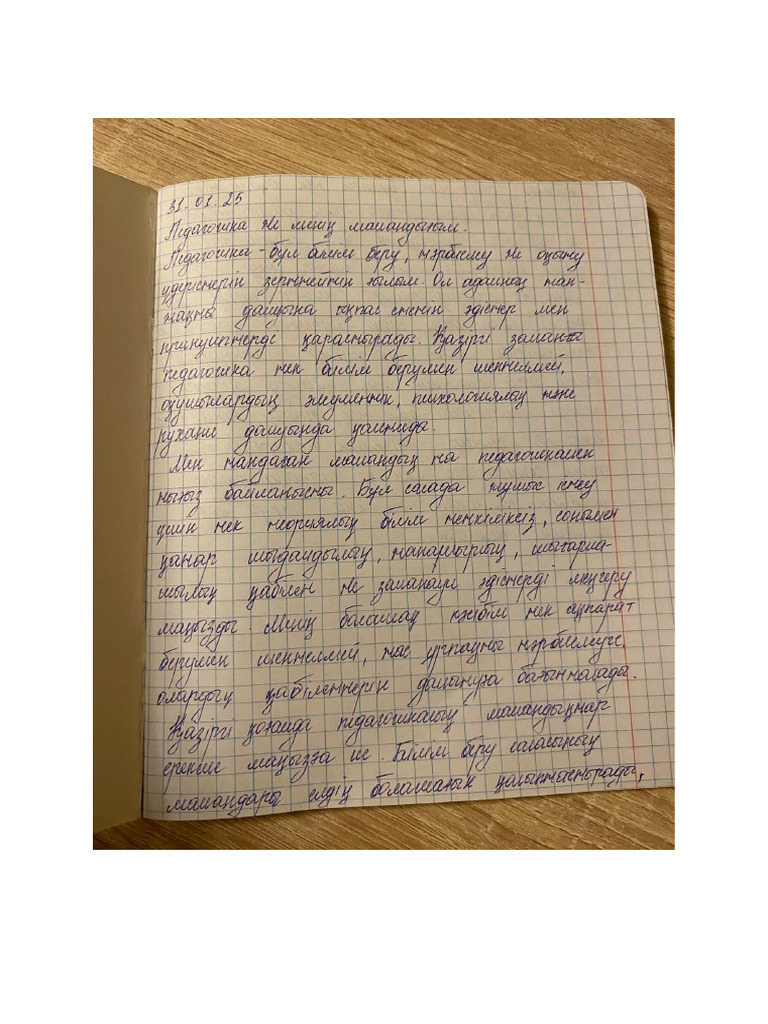 31.01.25
Педагогика ж/е менің мамандығым.
Педагогика - бұл білім беру, тәрбиелеу ж/е оқыту
үдерістерін зерттейтін ғылым. Ол адамның жан-
жақты дамуына ықпал ететін әдістер мен
принциптерді қарастырады. Қазіргі заманғы
педагогика тек білім берумен шектелмей,
оқушылардың әлеуметтік, психологиялық және
рухани дамуында қамтиды.
Мен таңдаған мамандық та педагогикамен
тығыз байланысты. Бұл салада жұмыс істеу
үшін тек теориялық білім жеткіліксіз, сонымен
қатар шыдамдылық, жанашырлық, шығарма-
шылық қабілет ж/е заманауи әдістерді меңгеру
маңызды. Менің болашақ кәсібім тек ақпарат
берумен шектелмей, жас ұрпақты тәрбиелеуге,
олардың қабілеттерін дамытуға бағытталады.
Қазіргі қоғамда педагогикалық мамандықтар
ерекше маңызға ие. Білім беру саласының
мамандары елдің болашағын қалыптастырады,